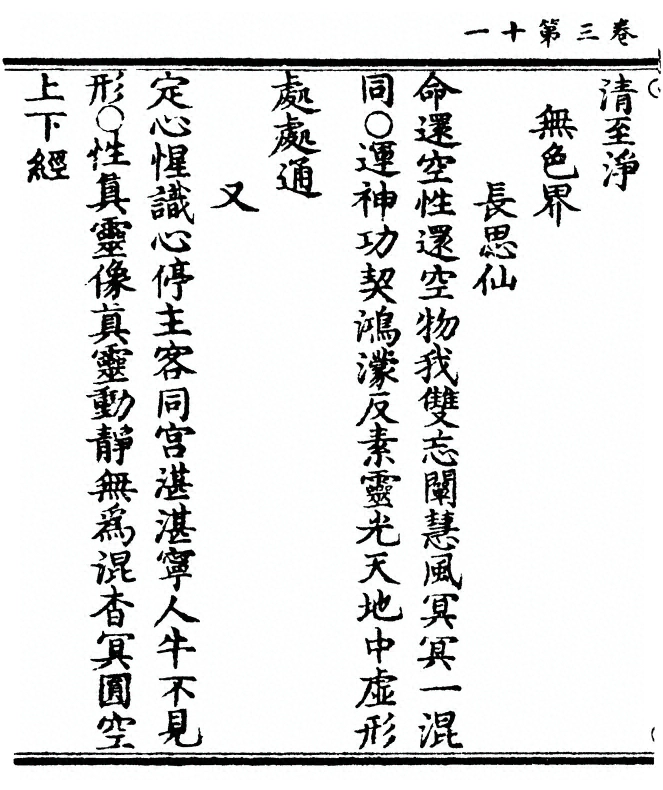 卷三第十一
清至淨
無色界
長思仙
命還空性還空物我雙忘闡慧風冥冥一混
同○運神功契鴻濛反素靈光天地中虛形
處處通
又
定心惺識心停主客同宮湛湛寧人牛不見
形○性真靈像真靈動靜無為混杳冥圓空
上下經